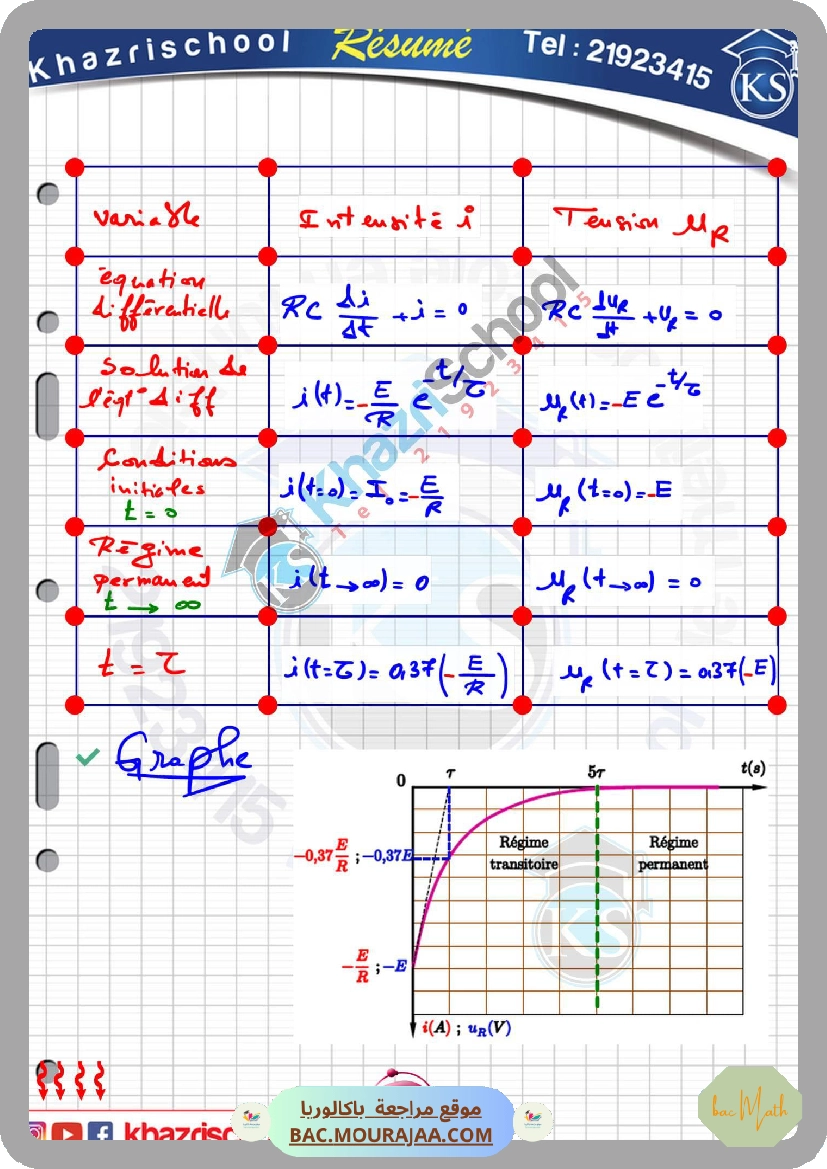 Khazrischool Résumé Tel : 21923415
KS
variable Intensité i Tension uR
équation différentielle RC di/dt + i = 0 RC duR/dt + uR = 0
Solution de l'éqt° diff i(t) = -E/R e^-t/τ uR(t) = -E e^-t/τ
Conditions initiales t = 0 i(t=0) = I0 = -E/R uR(t=0) = -E
Régime permanent t → ∞ i(t→∞) = 0 uR(t→∞) = 0
t = τ i(t=τ) = 0,37(-E/R) uR(t=τ) = 0,37(-E)
KhazriSchool
Tel 21923415
KS
✓ Graphe
0 τ 5τ t(s)
-0,37 E/R ; -0,37E
Régime transitoire
Régime permanent
-E/R ; -E
i(A) ; uR(V)
khazrisc
موقع مراجعة باكالوريا
BAC.MOURAJAA.COM
bac Math